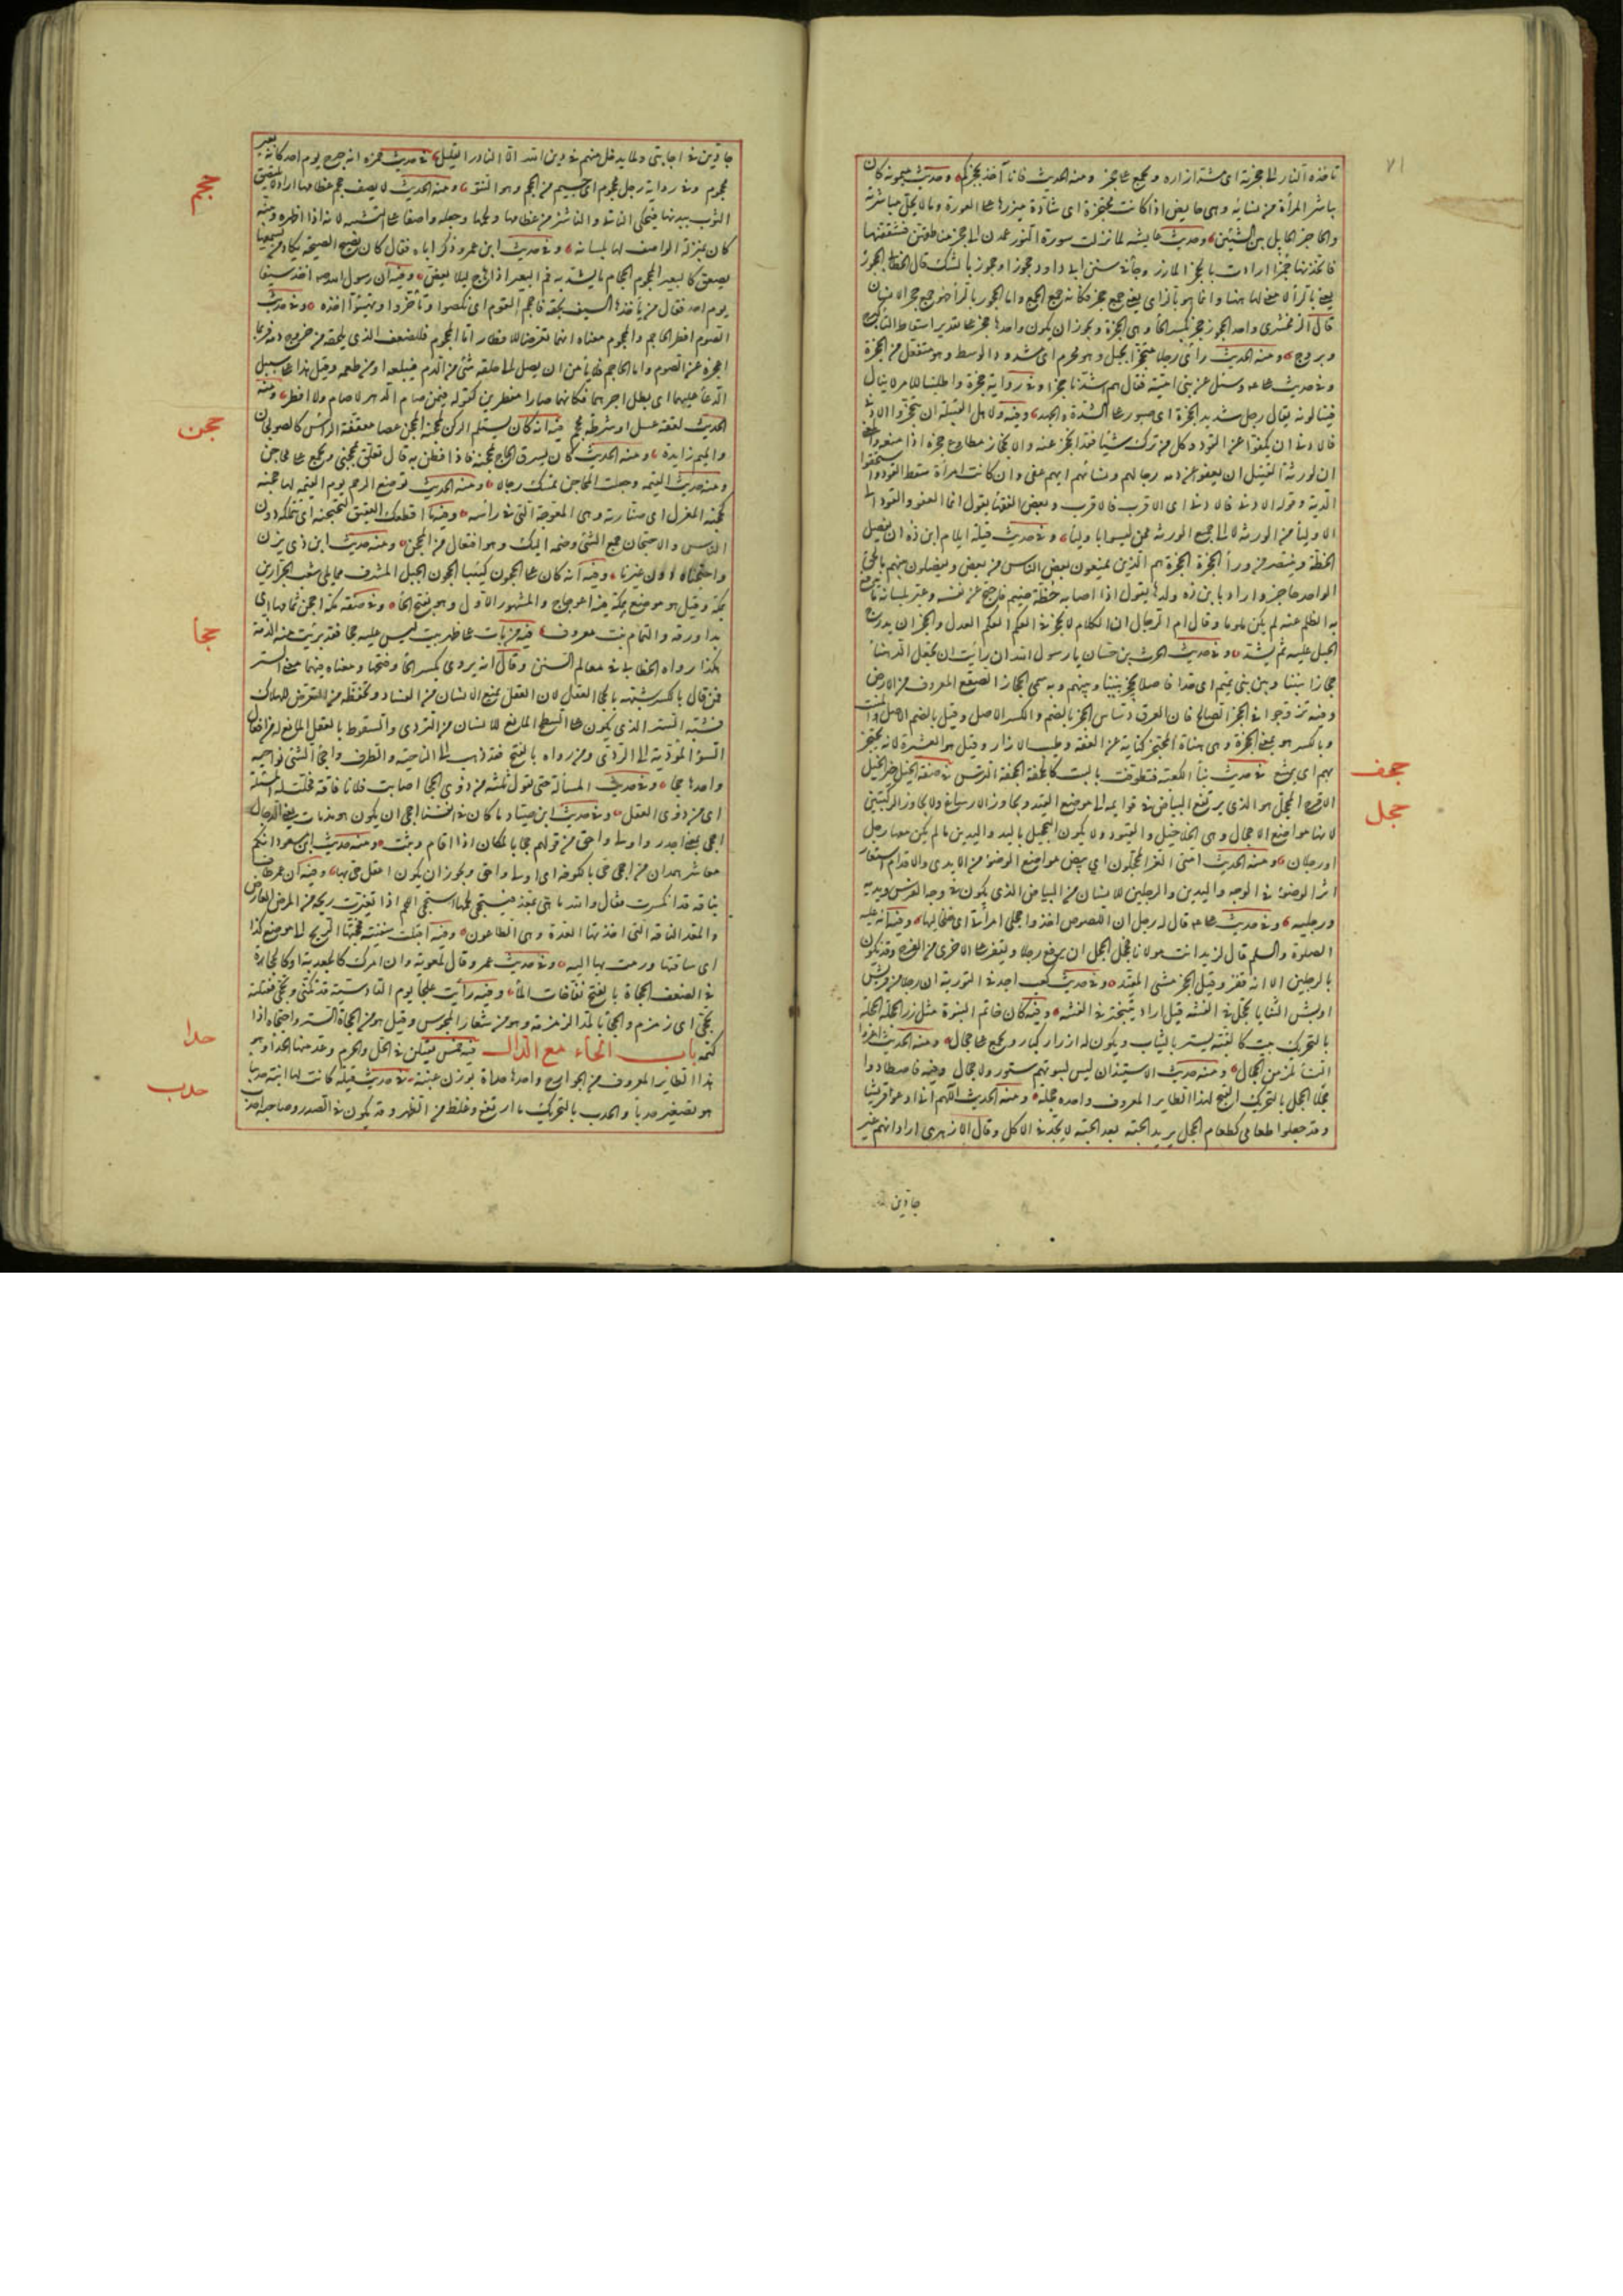 ٧١
تأخذه النار الى حجزته اى مشد ازاره وتجمع على حجز ومنه الحديث فانا آخذ بحجزكم وحديث ميمونه كان
يباشر المرأة من نسائه وهى حايض اذا كانت محتجزة اى شادة ميزرها على العورة ومالا يحل مباشرته
والحاجز الحايل بين الشيئين وحديث عايشه لما نزلت سورة النور عمدن الى حجز مناطقهن فشققنها
فاتخذنها خمرا ارادت بالحجز المآزر وجاء فى سنن ابى داود حجوز او حجور بالشك قال الخطابى الحجور
يعنى بالراء لا معنى لها ههنا وانما هو بالزاى يعنى جمع حجز فكأنه جمع الجمع واما الحجور بالراء فهو جمع حجر الانسان
قال الزمخشرى واحد الحجوز حجز بكسر الحاء وهى الحجزة ويجوز ان يكون واحدها حجزة على تقدير اسقاط التاء كبرج
وبروج ومنه الحديث رأى رجلا محتجزا بحبل وهو محرم اى مشدود الوسط وهو مفتعل من الحجزة
وفى حديث على وسئل عن بنى امية فقال هم اشدنا حجزا وفى رواية حجزة واطلبنا للامر لا ينال
فينالونه يقال رجل شديد الحجزة اى صبور على الشدة والجهد وفيه ولاهل القتيل ان ينحجزوا الادنى
فالادنى ان يكفوا عن القود وكل من ترك شيئا فقد انحجز عنه والانحجاز مطاوع حجزه اذا منعه والمعنى
ان لورثة القتيل ان يعفوا عن دمه رجالهم ونساؤهم ايهم عفى وان كانت امرأة سقط القود واستحقوا
الدية وقوله الادنى فالادنى اى الاقرب فالاقرب وبعض الفقهاء يقول انما العفو والقود الى
الاولياء من الورثة لا الى جميع الورثة ممن ليسوا باولياء وفى حديث قيلة ايلام ابن ذه ان يفصل
الخطة وينتصر من وراء الحجزة الحجزة هم الذين يمنعون بعض الناس من بعض ويفصلون بينهم بالحق
الواحد حاجز واراد بابن ذه ولدها يقول اذا اصابه خطة ضيم فاحتج عن نفسه وعبر بلسانه ما يدفع
به الظلم عنه لم يكن ملوما وقالت ام الرحال ان الكلام لا يحجز فى العكم العكم العدل والحجز ان يدرج
الحبل عليه ثم يشد وفى حديث الحرث بن حسان يا رسول الله ان رأيت ان تجعل الدهناء
حجازا بيننا وبين بنى تميم اى حدا فاصلا يحجز بيننا وبينهم وبه سمى الحجاز الصقع المعروف من الارض
وفيه تزوجوا فى الحجز الصالح فان العرق دساس الحجز بالضم والكسر الاصل وقيل بالضم الاصل والمنبت
وبالكسر هو بمعنى الحجزة وهى هيئة المحتجز كناية عن العفة وطيب الازار وقيل هو العشيرة لانه يحتجز
بهم اى يمتنع فى حديث بناء الكعبة فتطوقت بالبيت كالحجفة الحجفة الترس فى صفة الخيل خير الخيل
الاقرح المحجل هو الذى يرتفع البياض فى قوايمه الى موضع القيد ويجاوز الارساغ ولا يجاوز الركبتين
لانها مواضع الاحجال وهى الخلاخيل والقيود ولا يكون التحجيل باليد واليدين ما لم يكن معها رجل
او رجلان ومنه الحديث امتى الغر المحجلون اى بيض مواضع الوضوء من الايدى والاقدام استعار
اثر الوضوء فى الوجه واليدين والرجلين للانسان من البياض الذى يكون فى وجه الفرس ويديه
ورجليه وفى حديث على قال له رجل ان اللصوص اخذوا حجلى امرأتى اى خلخاليها وفيه انه عليه
الصلوة والسلم قال لزيد انت مولانا فحجل الحجل ان يرفع رجلا ويقفز على الاخرى من الفرح وقد يكون
بالرجلين الا انه قفز وقيل الحجز مشى المقيد وفى حديث كعب اجد فى التورية ان رجلا من قريش
اوبش الثنايا يحجل فى الفتنه قيل اراد يتبختر فى الفتنه وفيه كان خاتم النبوة مثل زر الحجلة الحجلة
بالتحريك بيت كالقبة يستر بالثياب ويكون له ازرار كبار وتجمع على حجال ومنه الحديث اعروا
النساء يلزمن الحجال ومنه حديث الاستيذان ليس لبيوتهم ستور ولا حجال وفيه فاصطادوا
حجلا الحجل بالتحريك القبج لهذا الطاير المعروف واحده حجلة ومنه الحديث اللهم انى ادعو قريشا
وقد جعلوا طعامى كطعام الحجل يريد الحبة بعد الحبة لا يجد فى الاكل وقال الازهرى اراد انهم غير
حجف
حجل
جادين فى
جادين فى اجابتى ولا يدخل منهم فى دين الله الا النادر القليل فى حديث حمزة انه خرج يوم احد كانه بعير
محجوم وفى رواية رجل محجوم اى جسيم من الحجم وهو النتو ومنه الحديث لا يصف حجم عظامها اراد لا يلتصق
الثوب ببدنها فيحكى الناتئ والناشز من عظامها ولحمها وجعله واصفا على التشبيه لانه اذا اظهره وبينه
كان بمنزلة الواصف لها بلسانه وفى حديث ابن عمر وذكر اباه فقال كان يصيح الصيحة يكاد من سمعها
يصعق كالبعير المحجوم الحجام ما يشد به فم البعير اذا هاج ليلا يعض وفيه ان رسول الله اخذ سيفا
يوم احد فقال من يأخذ هذا السيف بحقه فاحجم القوم اى نكصوا وتأخروا وتهيبوا اخذه وفى حديث
الصوم افطر الحاجم والمحجوم معناه انهما تعرضا للافطار اما المحجوم فللضعف الذى يلحقه من خروج دمه فربما
اعجزه عن الصوم واما الحاجم فلا يأمن ان يصل الى حلقه شئ من الدم فيبلعه او من طعمه وقيل هذا على سبيل
الدعاء عليهما اى بطل اجرهما فكانهما صارا مفطرين كقوله فيمن صام الدهر لا صام ولا افطر ومنه
الحديث لعقة عسل او شرطة محجم فيه انه كان يستلم الركن بمحجنه المحجن عصا معقفة الراس كالصولجان
والميم زايدة ومنه الحديث كان يسرق الحاج بمحجنه فاذا فطن به قال تعلق بمحجنى وتجمع على محاجن
ومنه حديث القيمة وجعلت المحاجن تمسك رجالا ومنه الحديث توضع الرحم يوم القيمة لها حجنة
كحجنة المغزل اى صنارته وهى المعوجة التى فى راسه وفيه ما اقطعك العقيق لتحتجنه اى تتملكه دون
الناس والاحتجان جمع الشئ وضمه اليك وهو افتعال من الحجن ومنه حديث ابن ذى يزن
واحتجناه دون غيرنا وفيه انه كان على الحجون كئيبا الحجون الجبل المشرف مما يلى شعب الجزارين
بمكة وقيل هو موضع بمكة فيه اعوجاج والمشهور الاول وهو بفتح الحاء وفى صفة مكة احجن ثمامها اى
بدا ورقه والثمام نبت معروف فيه من بات على ظهر بيت ليس عليه حجا فقد برئت منه الذمة
هكذا رواه الخطابى فى معالم السنن وقال انه يروى بكسر الحاء وفتحها ومعناه فيهما معنى الستر
فمن قال بالكسر شبهه بالحجى العقل لان العقل يمنع الانسان من الفساد ويحفظه من التعرض للهلاك
فشبه الستر الذى يكون على السطح المانع للانسان من التردى والسقوط بالعقل المانع له من افعال
السوء المؤدية الى الردى ومن رواه بالفتح فقد ذهب الى الناحية والطرف واحجاء الشئ نواحيه
واحدها حجا وفى حديث المسألة حتى يقول ثلثة من ذوى الحجا اصابت فلانا فاقة فحلت له المسئلة
اى من ذوى العقل وفى حديث ابن صياد ما كان فى انفسنا احجى ان يكون هو مذمات يعنى الدجال
احجى بمعنى اجدر واولى واحق من قولهم حجا بالمكان اذا اقام وثبت ومنه حديث ابن مسعود انكم
معاشر همدان من احجى حى بالكوفة اى اولى واحق ويجوز ان يكون اعقل حى بها وفيه ان عمر طاف
بناقة قد انكسرت فقال والله ما هى بمغد فيستحجى لحمها استحجى اللحم اذا تغيرت ريحه من المرض العارض
والمغد الناقة التى اخذتها الغدة وهى الطاعون وفيه اقبلت سفينة فحجتها الريح الى موضع كذا
اى ساقتها ورمت بها اليه وفى حديث عمرو قال لمعوية وان امرك كالجعدبة او كالحجاة
فى الضعف الحجاة بالفتح نفاخات الماء وفيه رأيت علجا يوم القادسية قد تكنى وتحجى فقتلته
تحجى اى زمزم والحجاء بالمد الزمزمة وهو من شعار المجوس وقيل هو من الحجاة الستر واحتجاه اذا
كتمه باب الحاء مع الدال فيه خمس يقتلن فى الحل والحرم وعد منها الحدأ وهو
هذا الطاير المعروف من الجوارح واحدها حدأة بوزن عنبة فى حديث قيلة كانت لها ابنة حديباء
هو تصغير حدباء والحدب بالتحريك ما ارتفع وغلظ من الظهر وقد يكون فى الصدر وصاحبه احدب
حجم
حجن
حجا
حدا
حدب